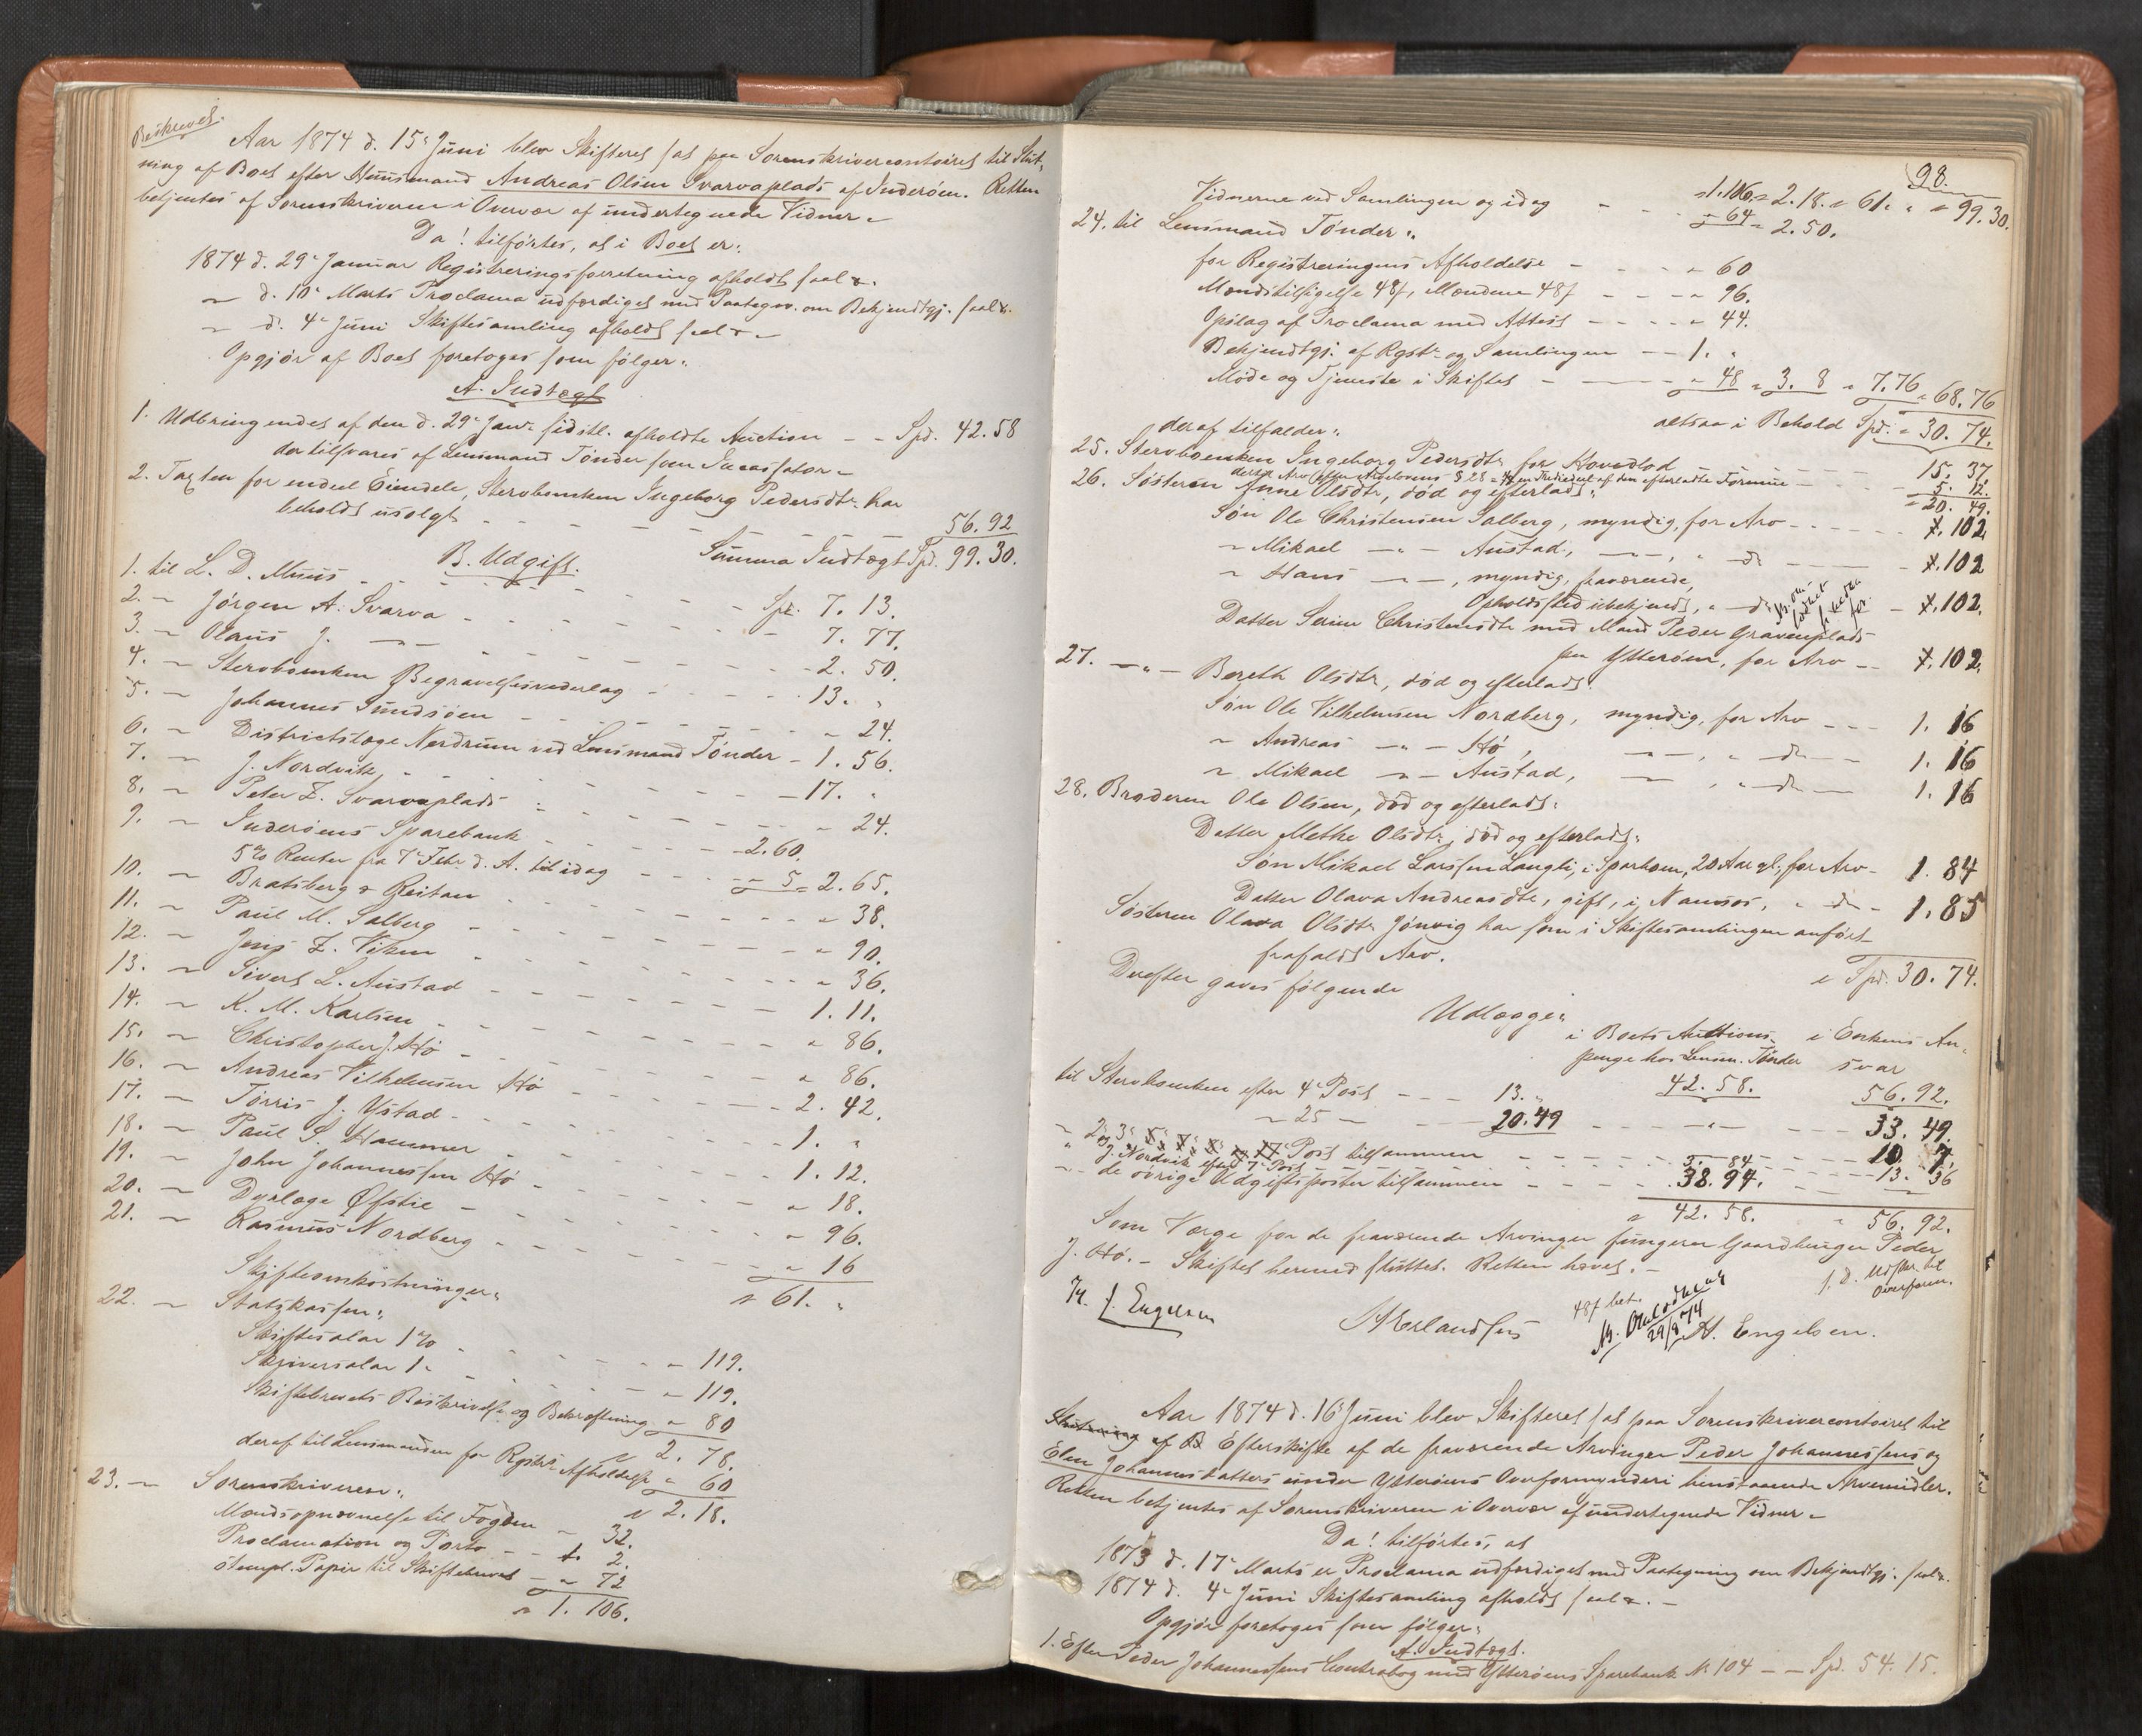 Beskrevet.
Aar 1874 d. 15de Juni blev Skifteret sat paa Sorenskrivercontoiret til Slut-
ning af Boet efter Huusmand Andreas Olsen Svarvaplads af Inderøen. Retten
betjentes af Sorenskriveren i Overvær af undertegnede Vidner.
Da! tilførtes, at i Boet er:
1874 d. 29de Januar Registreringsforretning afholdt sal. &.
" d. 10de Marts Proclama udfærdiget med Paategn. om Bekjendtgj. sal &.
" d. 4de Juni Skiftesamling afholdt sal &.
Opgjør af Boet foretoges som følger:
A. Indtægt
1. Udbringendet af den d. 29de Jan. sidstl. afholdte Auction - - Spd. 42.58
der tilsvares af Lensmand Tønder som Incassator.
2. Taxten for endeel Eiendele, Stervboenken Ingeborg Pedersdtr. har
beholdt usolgt - - - 56.92
Summa Indtægt Spd. 99.30.
B. Udgift.
1. til L. D. Muus - - - Spd. 7. 13.
2. " Jørgen A. Svarva - - - 7. 77.
3. " Olaus J. " - - - 2. 50.
4. " Stervboenken Begravelsesvederlag - - - 13. "
5. " Johannes Sundsøen - - - " 24.
6. " Districtslæge Nordrum ved Lensmand Tønder - 1. 56.
7. " J. Nordvik - - - 17. "
8. " Peter Z. Svarvaplads - - - " 24.
9. " Inderøens Sparebank - - - 2.60.
5 % Renter fra 7de Febr. d. A. til idag - - - " 5 = 2.65.
10. " Bratsberg & Reitan - - - " 38.
11. " Paul M. Salberg - - - " 90.
12. " Jens Z. Viken - - - " 36.
13. " Sivert L. Austad - - - 1. 11.
14. " K. M. Karlsen - - - " 86.
15. " Christopher J. Hø - - - " 86.
16. " Andreas Vilhelmsen Hø - - - 2. 42.
17. " Tørris J. Ystad - - - 1. "
18. " Paul S. Hammer - - - 1. 12.
19. " John Johannessen Hø - - - " 18.
20. " Dyrlæge Øfstie - - - " 96.
21. " Rasmus Nordberg - - - " 16
" 61. "
Skifteomkostninger:
22. " Statskassen:
Skiftesalær 1 % - - - " 119.
Skriversalær 1. - - - " 119.
Skiftebrevets Beskrivelse og Bekræftning " 80
" 2. 78.
deraf til Lensmanden for Registr. Afholdelse " 60
" 2. 18.
23. " Sorenskriveren:
Mændsopnævnelse til Fogden - 32.
Proclamation og Porto - - 1. 2.
stempl. Papir til Skiftebrevet - " 72
" 1. 106.
98.
" 1. 106. = 2. 18. " 61. " " 99.30.
Vidnerne ved Samlingen og idag - - " 64 = 2.50.
24. til Lensmand Tønder:
for Registreringens Afholdelse - - - " 60
Mændstilsigelse 48 s, Mændene 48 s - - - " 96.
Opslag af Proclama med Attest - - - " 44.
Bekjendtgj. af Rgstr. og Samlingen - - 1. "
Møde og Tjeneste i Skiftet - - " 48 = 3. 8 = 7.76 = 68.76
altsaa i Behold Spd. " 30. 74.
deraf tilfalder:
25. Stervboenken Ingeborg Pedersdtr. for Hovedlod - - - 15. 37.
dersa Arv efter Arvelovens § 25 = en Trediedel af den efterladte Formue - - - 5. 12.
" 20. 49.
26. Søsteren Anne Olsdtr, død og efterladt:
Søn Ole Christensen Salberg, myndig, for Arv - - - 102.
" Mikael " Austad, " , " do - - - 102
" Hans " , myndig, fraværende,
Opholdssted ubekjendt, " do - 102.
Datter Serine Christensdtr med Mand Peder Gravenplads
paa Ytterøen, for Arv - - 102.
27. " Bereth Olsdtr, død og efterladt:
Søn Ole Vilhelmsen Nordberg, myndig, for Arv - - - 1. 16
" Andreas " Hø, " , " do - - 1. 16
" Mikael " Austad, " , " do - 1. 16
28. Broderen Ole Olsen, død og efterladt:
Datter Methe Olsdtr, død og efterladt:
Søn Mikael Larssen Langli, i Sparboen, 20 Aar gl., for Arv - 1. 84
Datter Olava Andreasdtr, gift, i Namsos, " do - 1. 85
Søsteren Olava Olsdtr Jønvig har som i Skiftesamlingen anført
frafaldt Arv. " Spd. 30. 74.
Derefter gaves følgende
Udlægge:
i Boets Auctions- i Enkens An-
penge hos Lensm. Tønder svar
42. 58. 56. 92.
til Stervboenken efter 4de Post - - - 13. "
" 25 " - - 20.49 - - " - - 33. 49.
" 2, 3, Post tilsammen - - - 10. 7.
" J. Nordvik efter 7de Post - - - 3. 84 - - - 13. 36
" de øvrige Udgiftsposter tilsammen - - - 38. 94.
" 42. 58. " 56. 92.
Som Værge for de fraværende Arvinger fungerer Gaardbruger Peder
J. Hø. - Skiftet hermed sluttet. Retten hævet. -
J. Engelsen
Erlandsen
48 s bet.
29/8 74
A. Engelsen.
Udskr. til
Overform.
Aar 1874 d. 16de Juni blev Skifteret sat paa Sorenskrivercontoiret til
Slutning af B Efterskifte af de fraværende Arvinger Peder Johannessens og
Elen Johannesdatters under Ytterøens Overformynderi henstaaende Arvemidler.
Retten betjentes af Sorenskriveren i Overvær af undertegnede Vidner.
Da! tilførtes, at
1873 d. 17de Marts er Proclama udfærdiget med Paategning om Bekjendtgj. sal &.
1874 d. 4de Juni Skiftesamling afholdt sal &. -
Opgjør foretoges som følger:
A. Indtægt.
1. Efter Peder Johannessens Contrabog med Ytterøens Sparebank No 104 - - Spd. 54. 15.